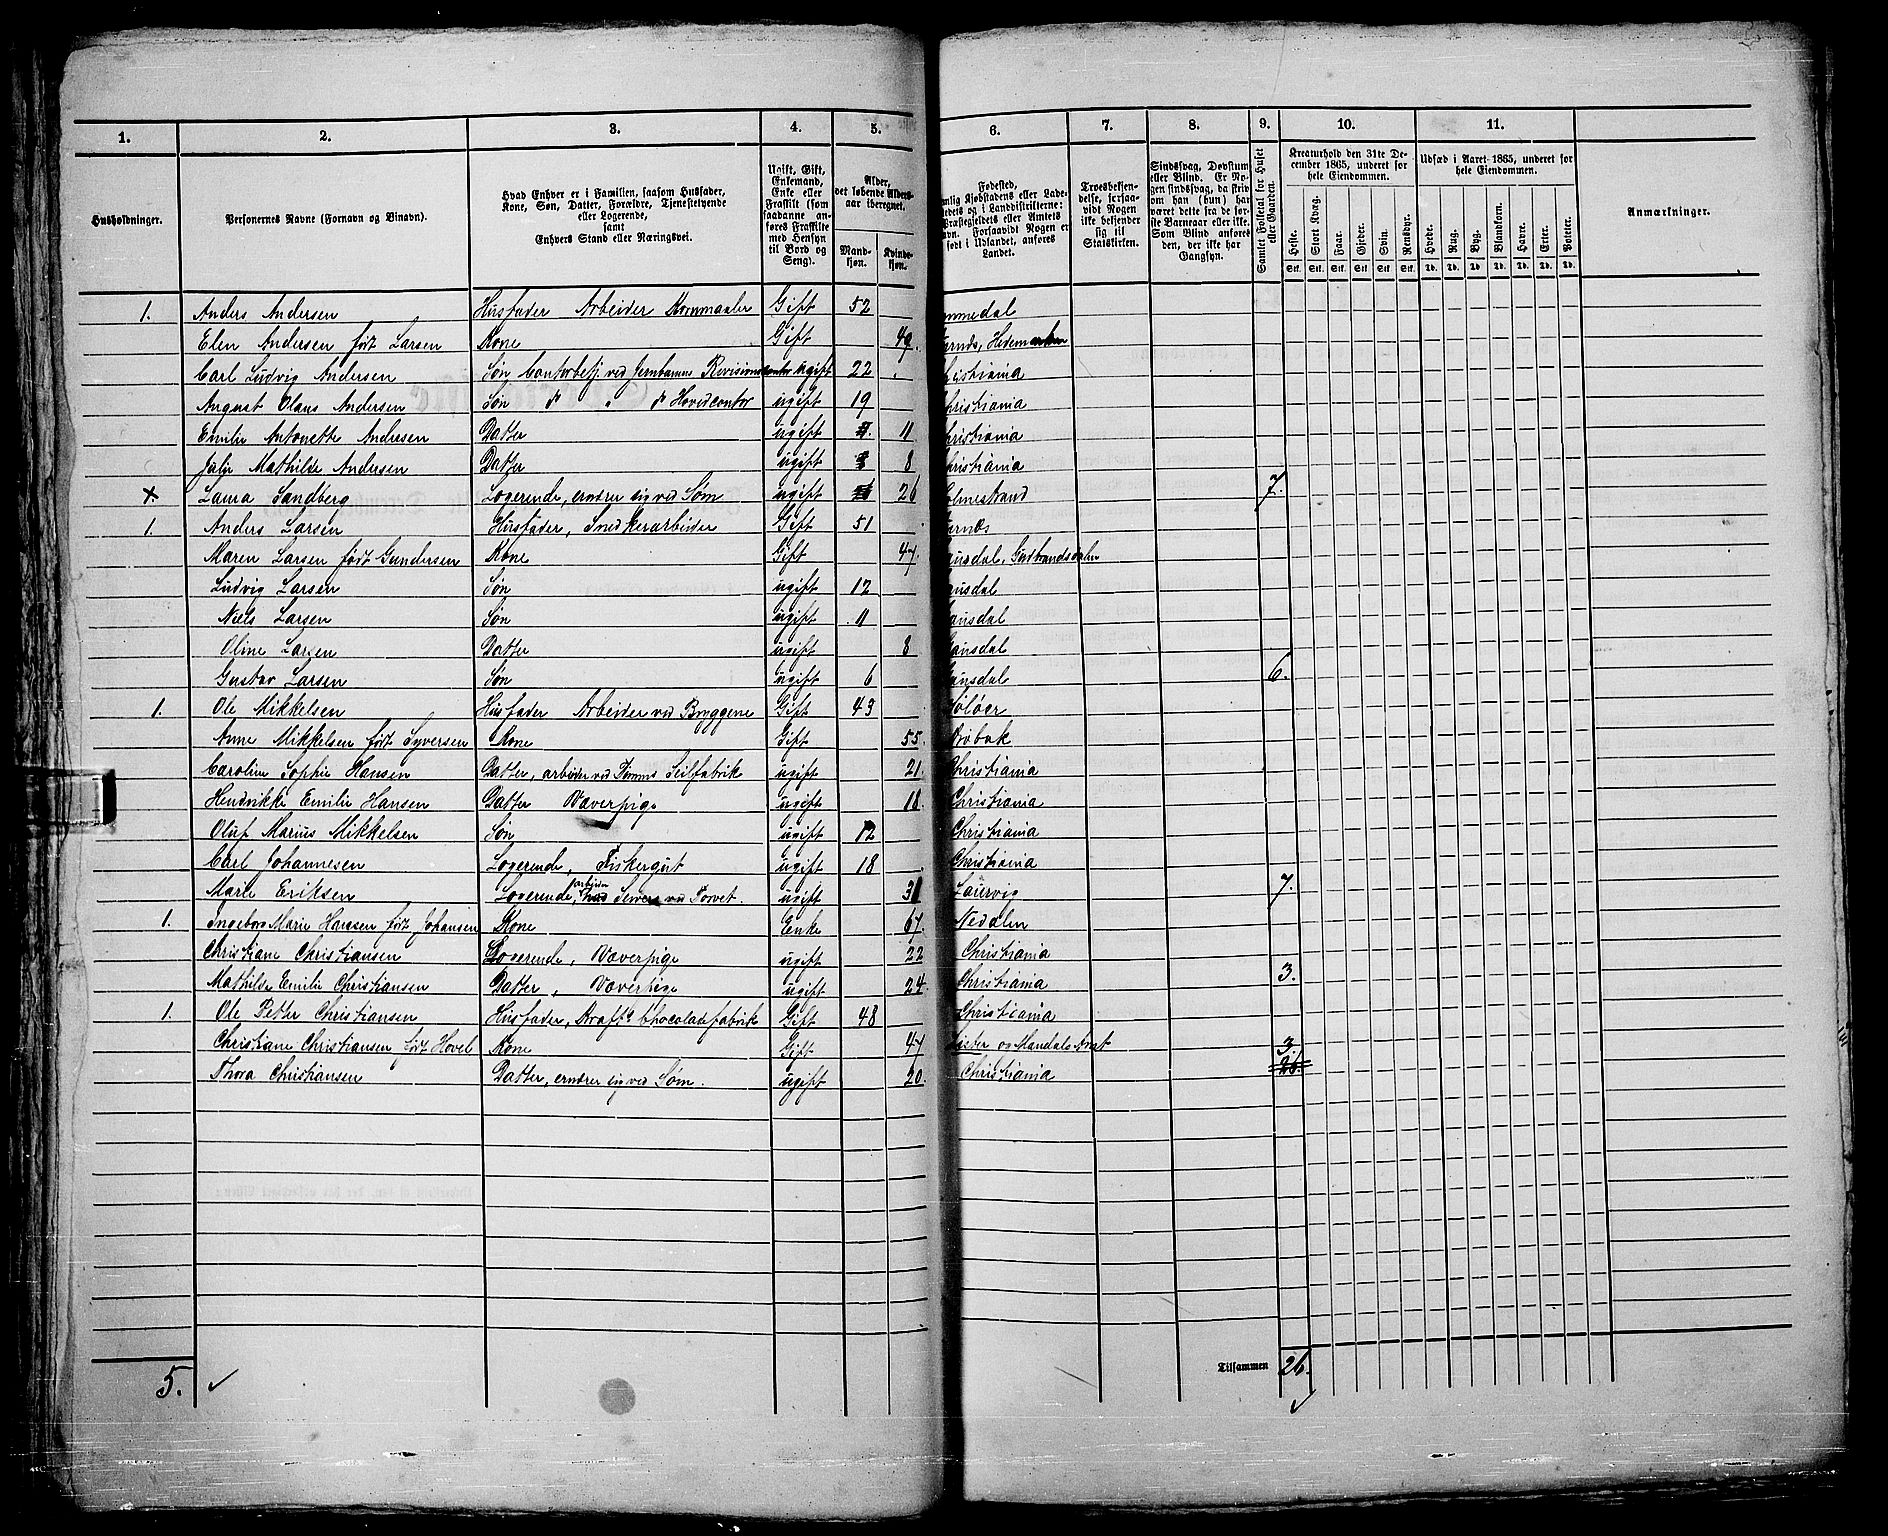 1. 2. 3. 4. 5. 6. 7. 8. 9. 10. 11.
Husholdninger.
Personernes Navne (Fornavn og Binavn).
Hvad Enhver er i Familien, saasom Husfader,
Kone, Søn, Datter, Forældre, Tjenestetyende
eller Logerende,
samt
Enhvers Stand eller Næringsvei.
Ugift, Gift,
Enkemand,
Enke eller
Fraskilt (som
saadanne an-
føres Fraskilte
med Hensyn
til Bord og
Seng).
Alder,
det løbende Alders-
aar iberegnet.
Mand-
kjøn.
Kvinde-
kjøn.
Fødested,
nlig Kjøbstadens eller Lade-
edets og i Landdistrikterne:
Præstegjeldets eller Amtets
vn. Forsaavidt Nogen er
født i Udlandet, anføres
Landet.
Troesbekjen-
delse, forsaa-
vidt Nogen
ikke bekjender
sig til
Statskirken.
Sindssvag, Døvstum
eller Blind. Er No-
gen sindssvag, da skriv
om han (hun) har
været dette fra de før-
ste Barneaar eller ikke.
Som Blind anføres
den, der ikke har
Gangsyn.
Samlet Folketal for Huset
eller Gaarden.
Kreaturhold den 31te De-
cember 1865, underet for
hele Eiendommen.
Heste. Stort Kvæg. Faar. Gjeder. Svin. Rensdyr.
Stk. Stk. Stk. Stk. Stk. Stk.
Udsæd i Aaret 1865, underet for
hele Eiendommen.
Hvede. Rug. Byg. Blandkorn. Havre. Erter. Poteter.
Td. Td. Td. Td. Td. Td. Td.
Anmærkninger.
1. Anders Andersen Husfader Arbeider Kornmaaler Gift 52 ommedal
Elen Andersen født Larsen Kone Gift 49. Hedemarken
Carl Ludvig Andersen Søn Contorbetj. ved Jernbanens Revisionscontor ugift 22 hristiania
August Olaus Andersen Søn d° " d° Hovedcontor ugift 19 Christiania
Emilie Antonette Andersen Datter ugift 11 Christiania
Julie Mathilde Andersen Datter ugift 8 Christiania
x Laura Sandberg Logerende, ernærer sig ved Søm ugift 26 olmestrand 7.
1. Anders Larsen Husfader, Snedkerarbeider Gift 51
Maren Larsen født Gundersen Kone Gift 47 ausdal, Gudbrandsdalen
Ludvig Larsen Søn ugift 12 ausdal
Niels Larsen Søn ugift 11 ausdal
Oline Larsen Datter ugift 8 Gausdal
Gustav Larsen Søn ugift 6 ausdal 6.
1. Ole Mikkelsen Husfader Arbeider ved Bryggene Gift 43 Soløer
Anne Mikkelsen født Syversen Kone Gift 55. Drøbak
Caroline Sophie Hansen Datter, arbeider ved Timms Seilfabrik ugift 21. Christiania
Hendrikke Emilie Hansen Datter Væverpige ugift 18. Christiania
Oluf Marius Mikkelsen Søn ugift 12 Christiania
Carl Johannesen Logerende, Fiskergut ugift 18 Christiania
Marie Eriksen Logerende, arbeider ved Torvet. ugift 31 Laurvig 7.
1. Ingeborg Marie Hansen født Johansen Kone Enke 67. Nedalen
Christiane Christiansen Logerende, Væverpige ugift 22 Christiania
Mathilde Emilie Christiansen Datter, Væverpige ugift 24. Christiania 3.
1. Ole Petter Christiansen Husfader, Kraft Chocoladefabrik Gift 48 Christiania
Christiane Christiansen født Hovel Kone Gift 47 ister og Mandals Amt 3
Thora Christiansen Datter, ernærer sig ved Søm. ugift 20. Christiania 26.
5. Tilsammen 26.